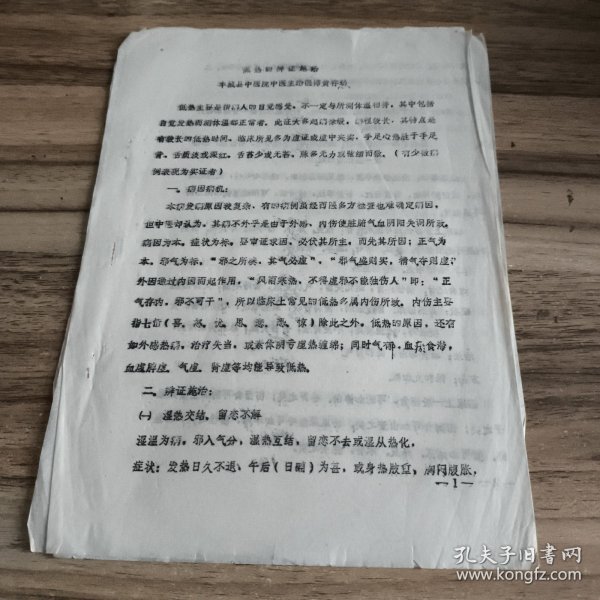 低热的辨证施治
丰城县中医院中医主治医师黄
低热主要是指病人的自觉感受，不一定与所测体温相符，其中包括
自觉发热而测体温却正常者。此证大多起病徐缓，病程较长，其特点是
有较长的低热时间，临床所见多为虚证或虚中夹实，手足心热胜于手足
背，舌质淡或深红，舌苔少或无苔，脉多无力或弦细而数。（有少数病
例表现为实证者）
一、病因病机：
本病发病原因较复杂，有的病例虽经西医多方检查也难确定病因，
但中医却认为，其病不外乎是由于外感，内伤使脏腑气血阴阳失调所致，
病因为本，症状为标，要审证求因，必伏其所主，而先其所因；正气为
本，邪气为标，“邪之所凑，其气必虚”，“邪气盛则实，精气夺则虚；
外因通过内因而起作用，“风雨寒热，不得虚邪不能独伤人”即：“正
气存内，邪不可干”，所以临床上常见的低热多属内伤所致，内伤主要
指七情（喜、怒、忧、思、悲、恐、惊）除此之外，低热的原因，还有
如外感热病，治疗失当，或素体阴亏虚热缠绵；同时气郁、血瘀食滞，
血虚脾虚，气虚，肾虚等均能导致低热。
二、辨证施治：
㈠ 湿热交结，留恋不解
湿温为病，邪入气分，湿热互结，留恋不去或湿从热化，
症状：发热日久不退，午后（日晡）为甚，或身热肢重，胸闷腹胀，
—1—
孔夫子旧书网
www.kongfz.com